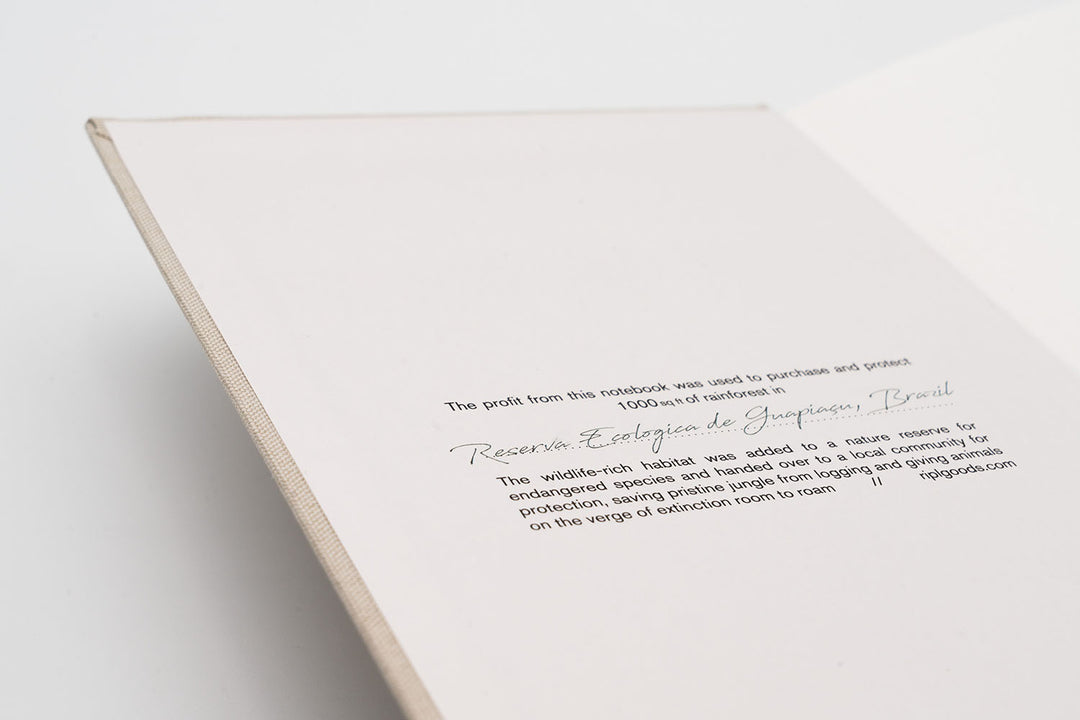 The profit from this notebook was used to purchase and protect
1000 sq ft of rainforest in
Reserva Ecologica de Guapiaçu, Brazil
The wildlife-rich habitat was added to a nature reserve for
endangered species and handed over to a local community for
protection, saving pristine jungle from logging and giving animals
on the verge of extinction room to roam // riplgoods.com